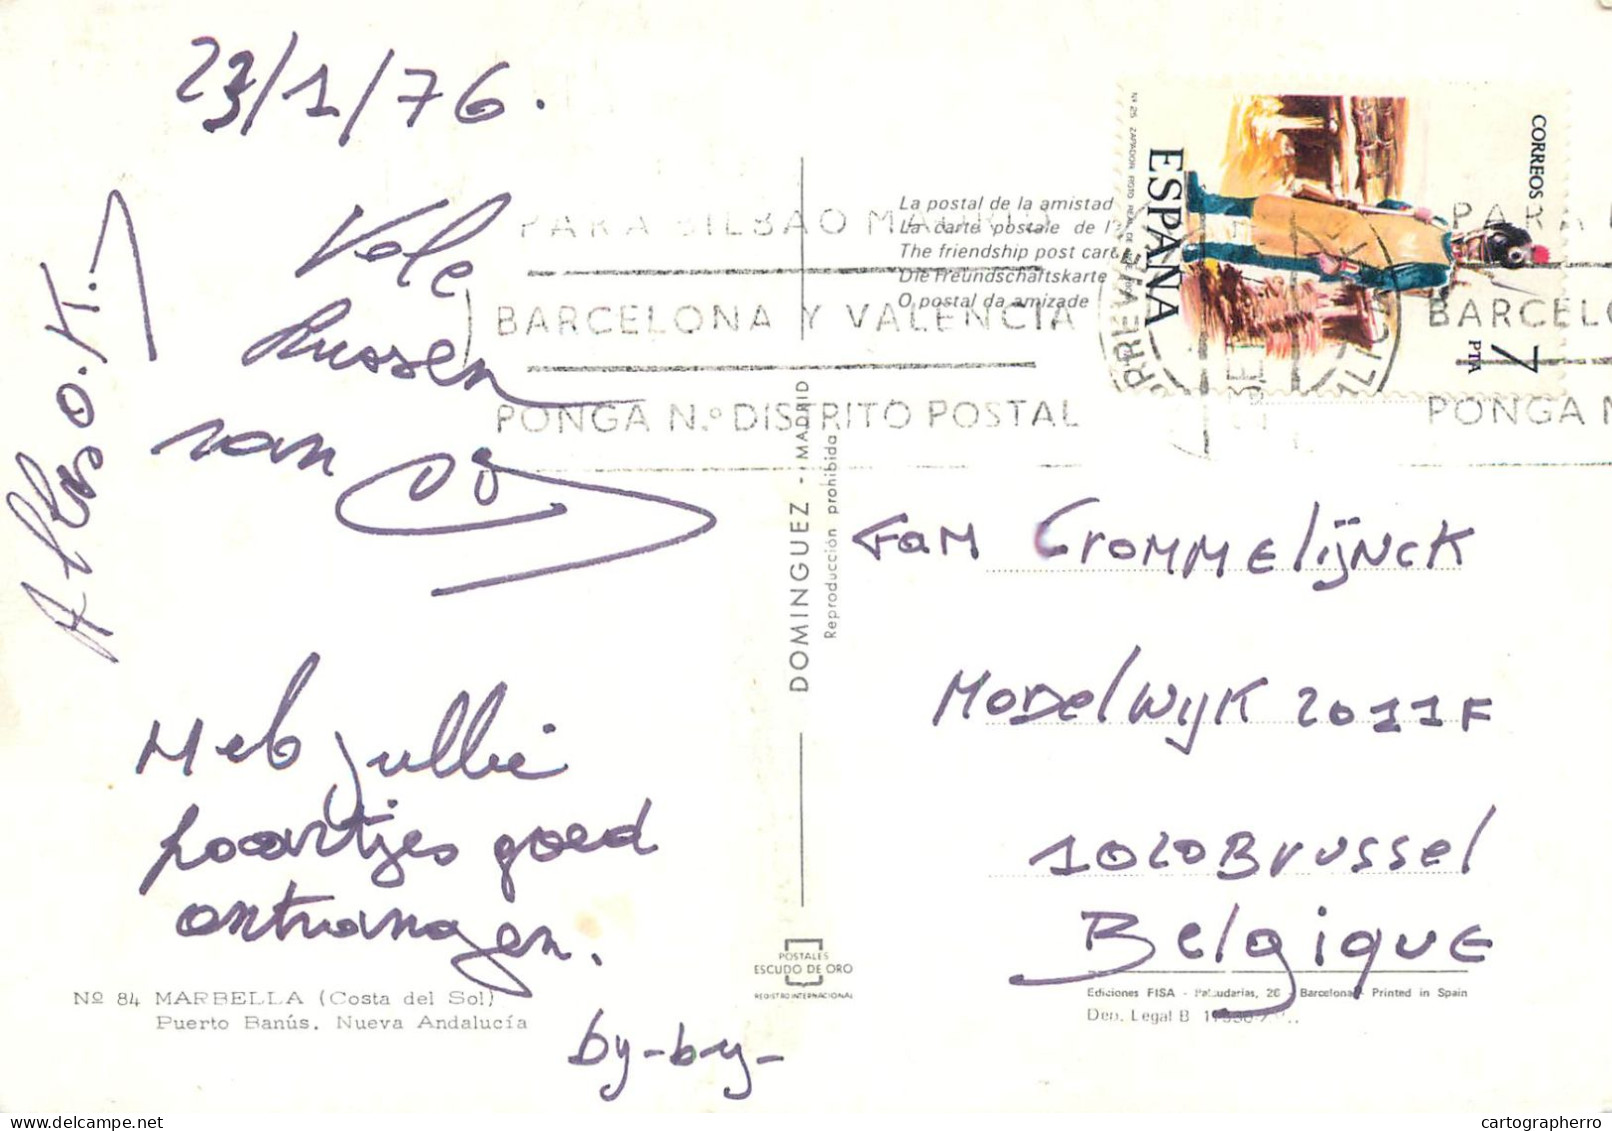 23/1/76.
Vele
Kussen
van
Alles O.K.
Heb jullie
poortjes goed
ontvangen.
by-by-
Nº 84 MARBELLA (Costa del Sol)
Puerto Banús. Nueva Andalucía
La postal de la amistad
La carte postale de l'
The friendship post card
Die freundschaftskarte
O postal da amizade
PARA BILBAO MADRID
BARCELONA Y VALENCIA
PONGA N.º DISTRITO POSTAL
DOMINGUEZ - MADRID
Reproducción prohibida
POSTALES
ESCUDO DE ORO
REGISTRO INTERNACIONAL
CORREOS
ESPAÑA
7 PTA
PARA
BARCELO
PONGA N
Fam Crommelijnck
Modelwijk 2011F
1020 Brussel
Belgique
Ediciones FISA - Palaudarias, 26 - Barcelona - Printed in Spain
Dep. Legal B
cartographerro